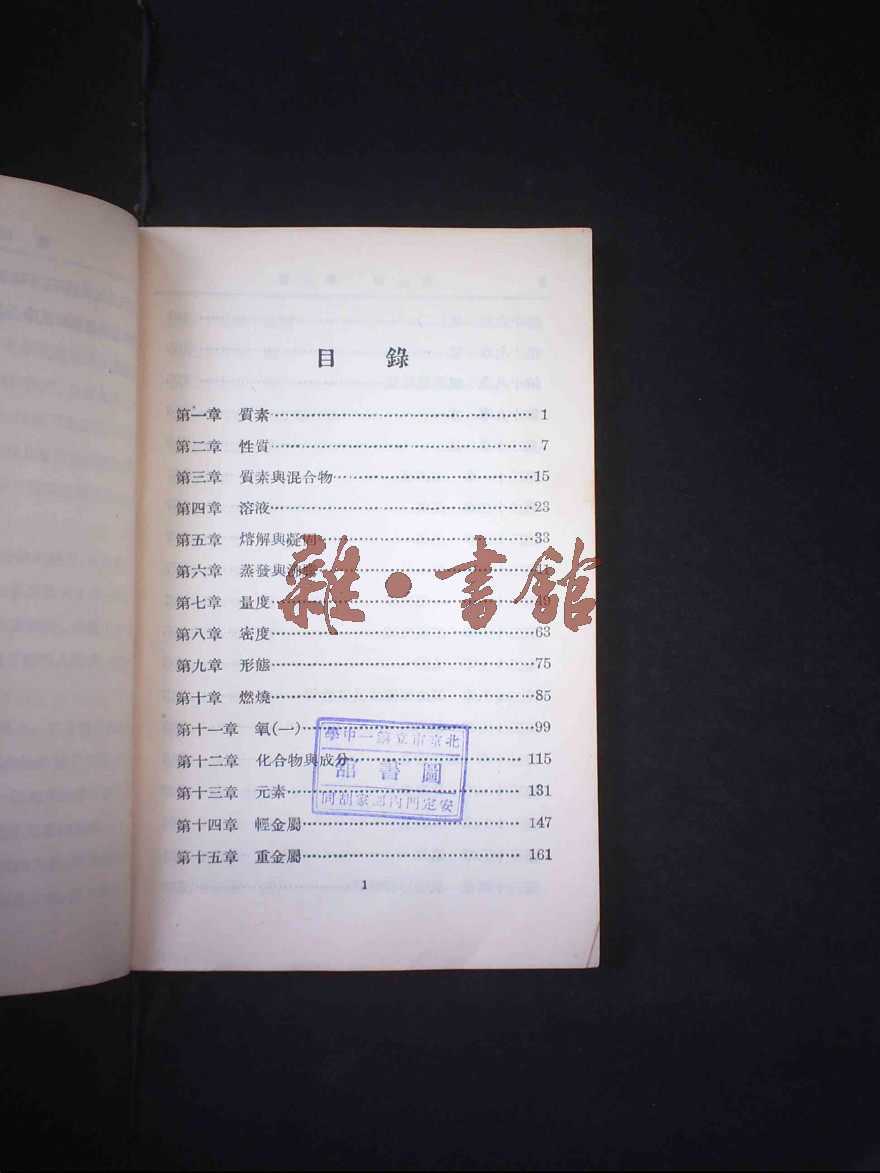 目 錄
第一章 質素……1
第二章 性質……7
第三章 質素與混合物……15
第四章 溶液……23
第五章 熔解與凝固……33
第六章 蒸發與沸騰……41
第七章 量度……49
第八章 密度……63
第九章 形態……75
第十章 燃燒……85
第十一章 氧(一)……99
第十二章 化合物與成分……115
第十三章 元素……131
第十四章 輕金屬……147
第十五章 重金屬……161
1
雜·書館
北京市立第一中學
圖書館
安定門內 家胡同